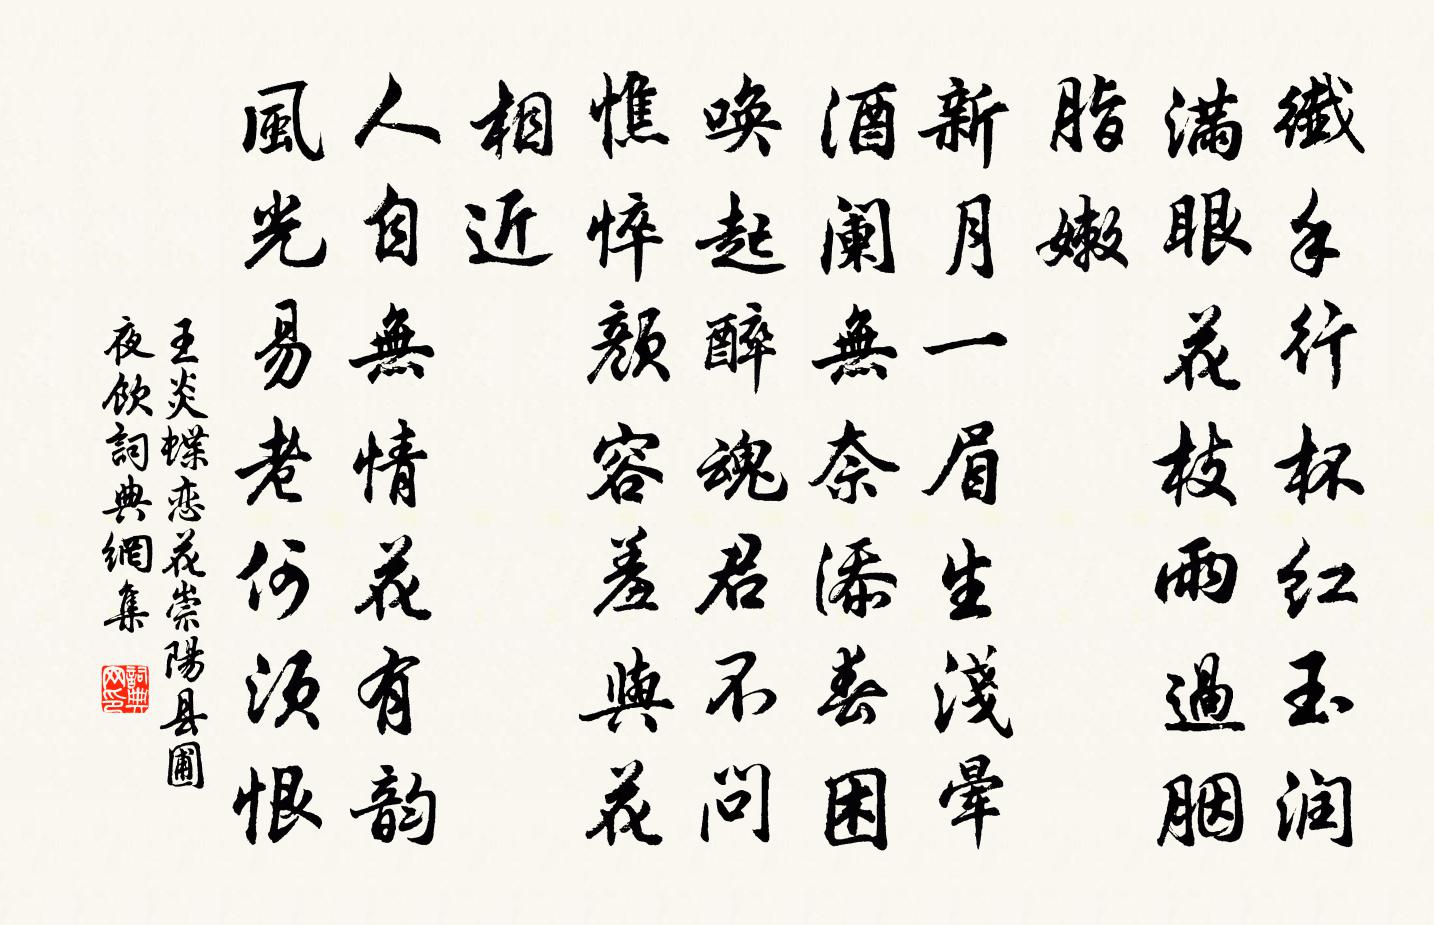 纖手行杯红玉润
满眼花枝雨過胭
脂嫩
新月一眉生淺暈
酒阑無奈添春困
唤起醉魂君不问
憔悴颜容羞與花
相近
人自無情花有韵
風光易老何须恨
王炎蝶恋花崇陽县圃
夜飲詞典網集
詞典网印